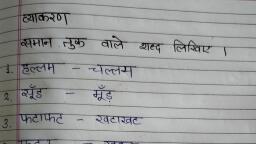 व्याकरण
समान तुक वाले शब्द लिखिए ।
1. हल्लम - चल्लम
2. सूँड - मूँड
3. फटाफट - खटाखट